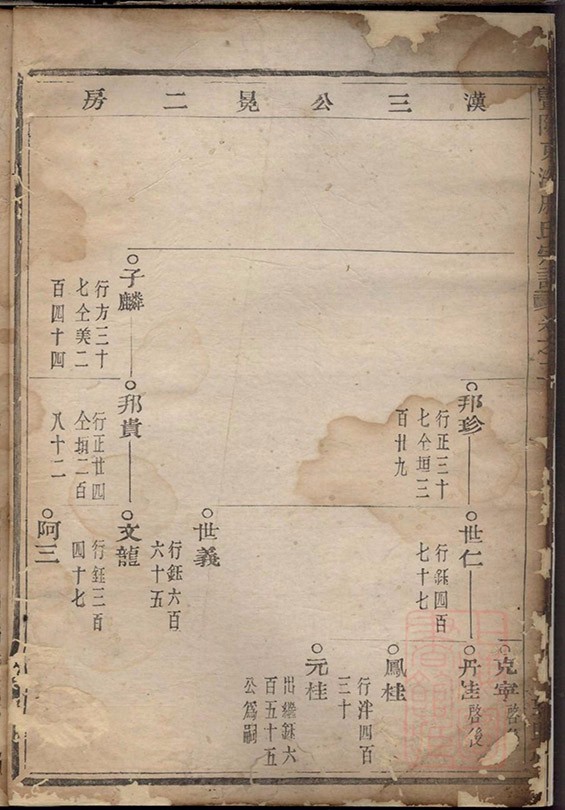 漢三公晃二房
邦珍
行正三十
七仝垣三
百廿九
世仁
行鈺四百
七十七
克寧
啓
丹桂
啓後
鳳桂
行泮四百
三十
元桂
出繼鈺六
百五十五
公為嗣
世義
行鈺六百
六十五
子麟
行方三十
七仝美二
百四十四
邦貴
行正廿四
仝垣二百
八十二
文龍
行鈺三百
四十七
阿三